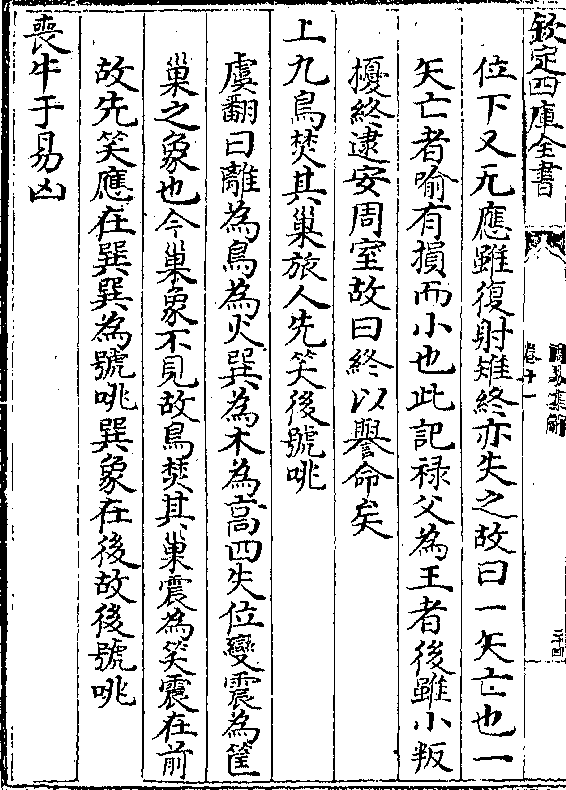 欽定四庫全書
周易集解
卷十一
三十四
位下又无應雖復射雉終亦失之故曰一矢亡也一
矢亡者喻有損而小也此記禄父為王者後雖小叛
擾終逮安周室故曰終以譽命矣
上九鳥焚其巢旅人先笑後號咷
虞翻曰離為鳥為火巽為木為高四失位變震為筐
巢之象也今巢象不見故鳥焚其巢震為笑震在前
故先笑應在巽巽為號咷巽象在後故後號咷
喪牛于易凶